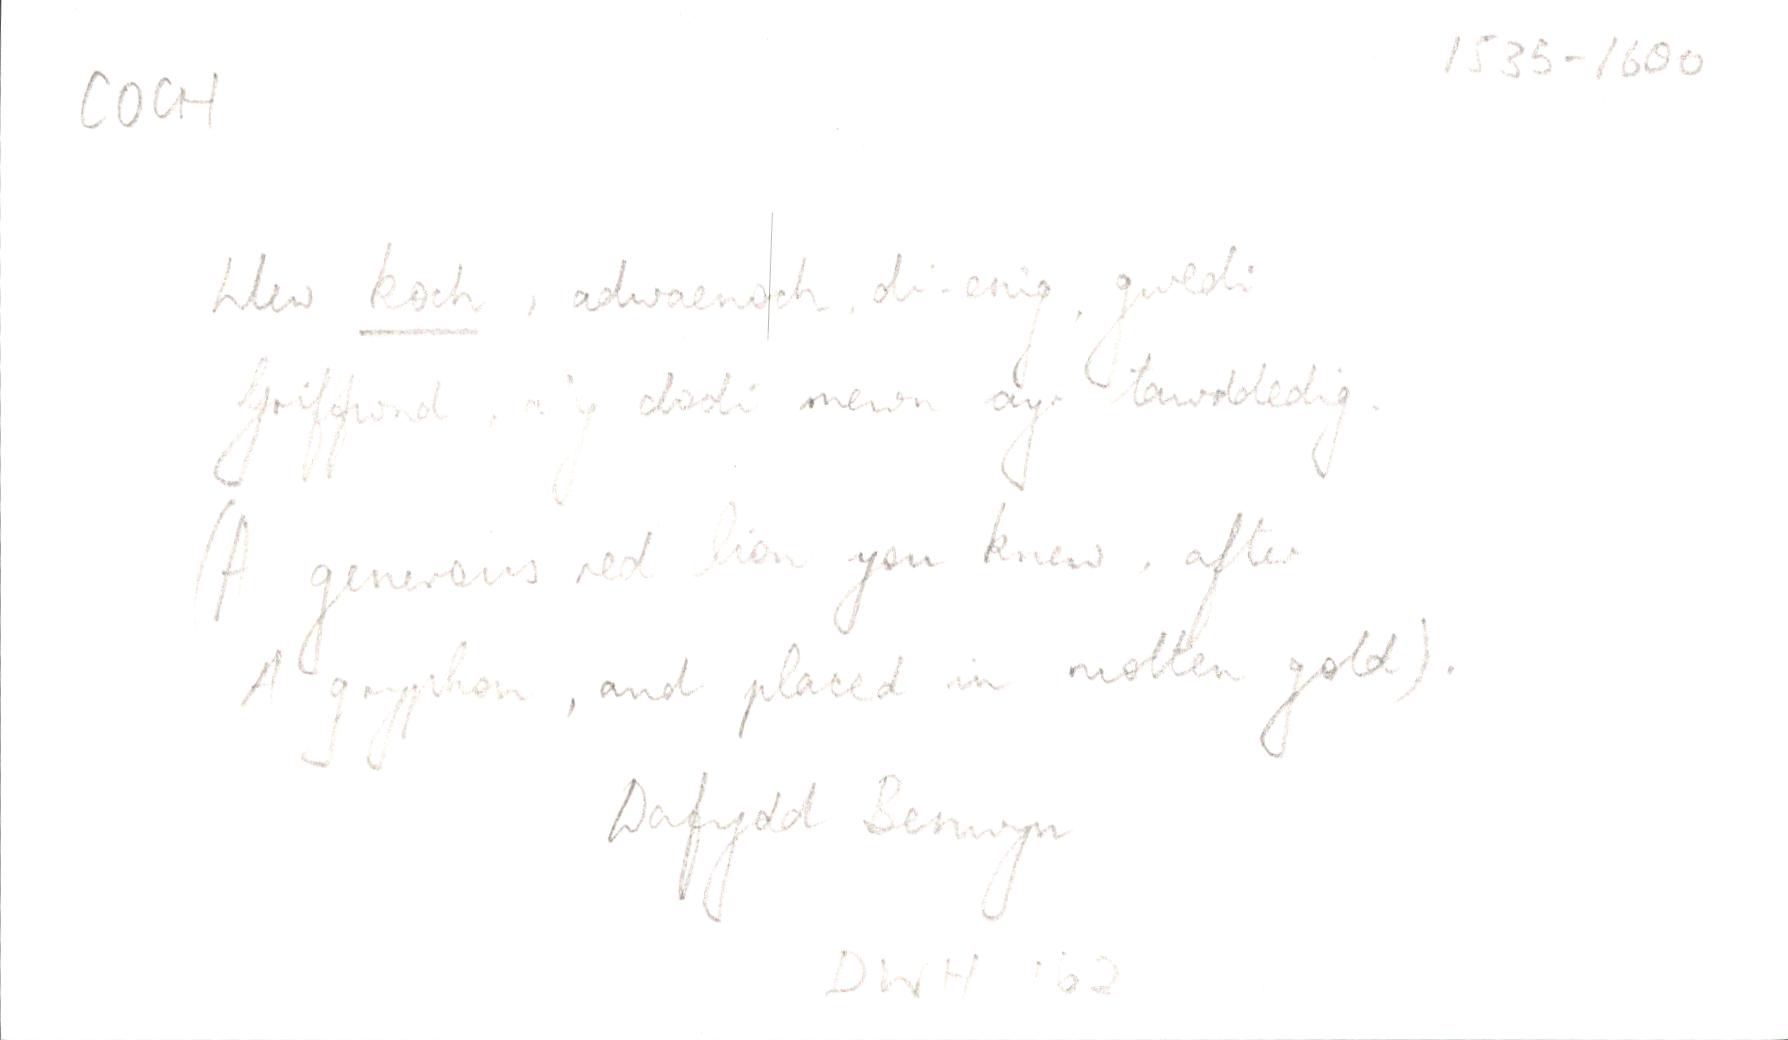 COCH
1535-1600
Llew koch, adwaenoch, di-enig, gwedi
Griffwnd, a'y dodi mewn ayr tawddedig.
(A generous red lion you knew, after
A gryphon, and placed in molten gold).
Dafydd Benwyn
DWH 162